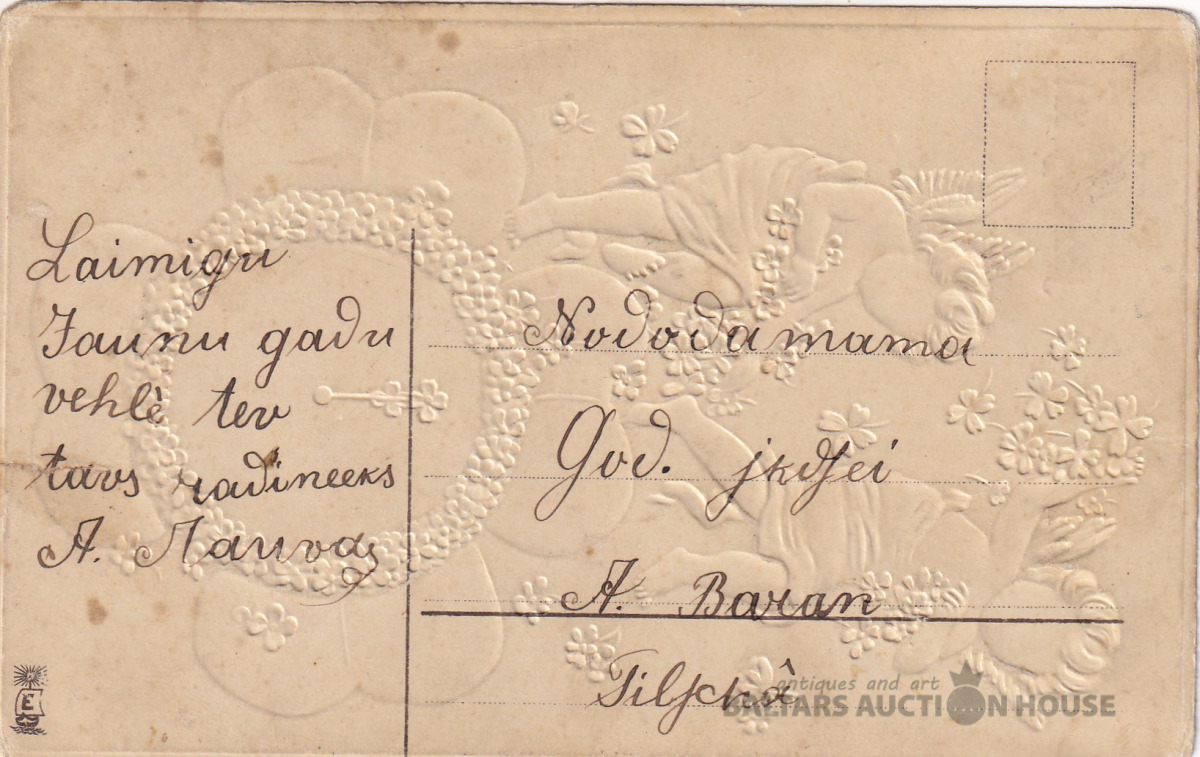 Laimigu
Jaunu gadu
vehlè tev
tavs radineeks
A.
Nododama
God. jkdſei
A. Baran
Tilſchâ
E
antiques and art
BALTARS AUCTION HOUSE